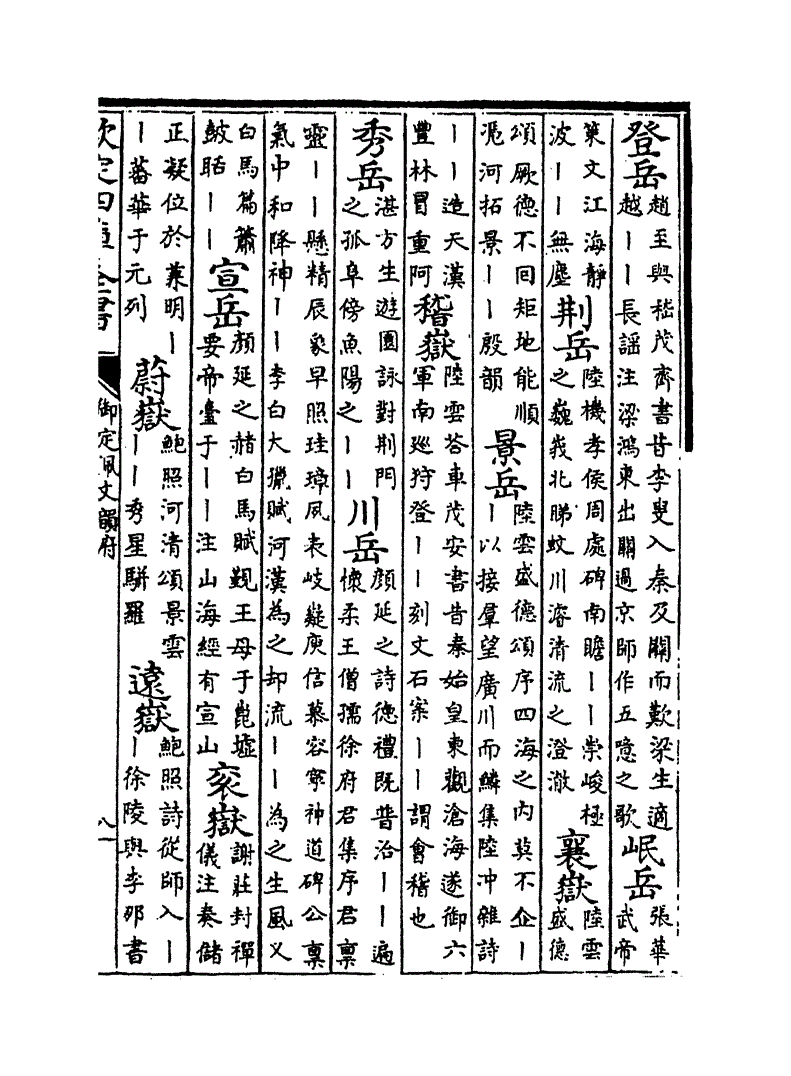 登岳 趙至與嵇茂齊書昔李叟入秦及關而歎梁生適
越丨丨長謠注梁鴻東出關過京師作五噫之歌 岷岳 張華
武帝
策文江海靜
波丨丨無塵 荆岳 陸機孝侯周處碑南瞻丨丨崇峻極
之巍峩北睇蛟川濬清流之澄澈 襄嶽 陸雲
盛德
頌厥德不回矩地能順
滉河拓景丨丨殷韻 景岳 陸雲盛德頌序四海之内莫不企丨
丨以接羣望廣川而鱗集陸冲雜詩
丨丨造天漢
豐林冒重阿 稽嶽 陸雲答車茂安書昔秦始皇東觀滄海遂御六
軍南巡狩登丨丨刻文石案丨丨謂會稽也
秀岳 湛方生遊園詠對荆門
之孤阜傍魚陽之丨丨 川岳 顔延之詩德禮既普洽丨丨遍
懷柔王僧孺徐府君集序君稟
靈丨丨懸精辰象早照珪璋夙表岐嶷庾信慕容寧神道碑公稟
氣中和降神丨丨李白大獵賦河漢為之却流丨丨為之生風又
白馬篇簫
鼓聒丨丨 宣岳 顔延之赭白馬賦覲王母于崑墟
要帝臺于丨丨注山海經有宣山 衮嶽 謝莊封禪
儀注奏儲
正凝位於兼明丨
丨蕃華于元列 蔚嶽 鮑照河清頌景雲
丨丨秀星駢羅 遠嶽 鮑照詩從師入丨
丨徐陵與李那書
欽定四庫全書 御定佩文韻府 八一